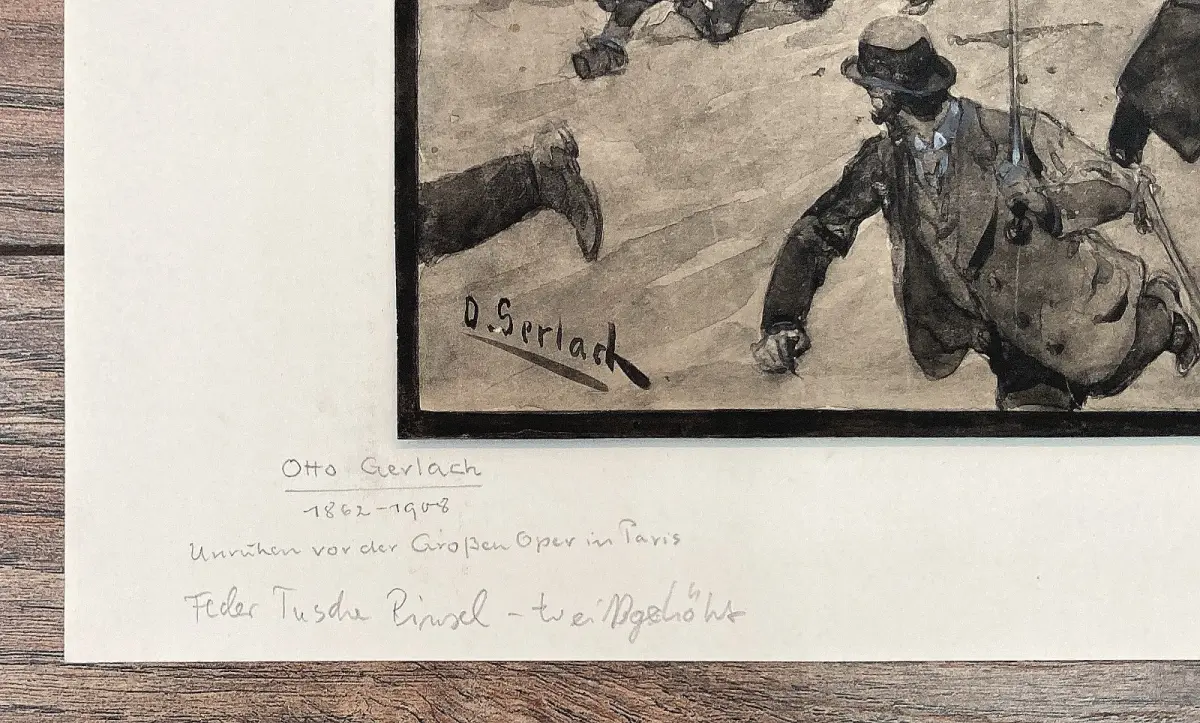 O. Gerlach
Otto Gerlach
1862-1908
Unruhen vor der Großen Oper in Paris
Feder Tusche Pinsel - weißgehöht